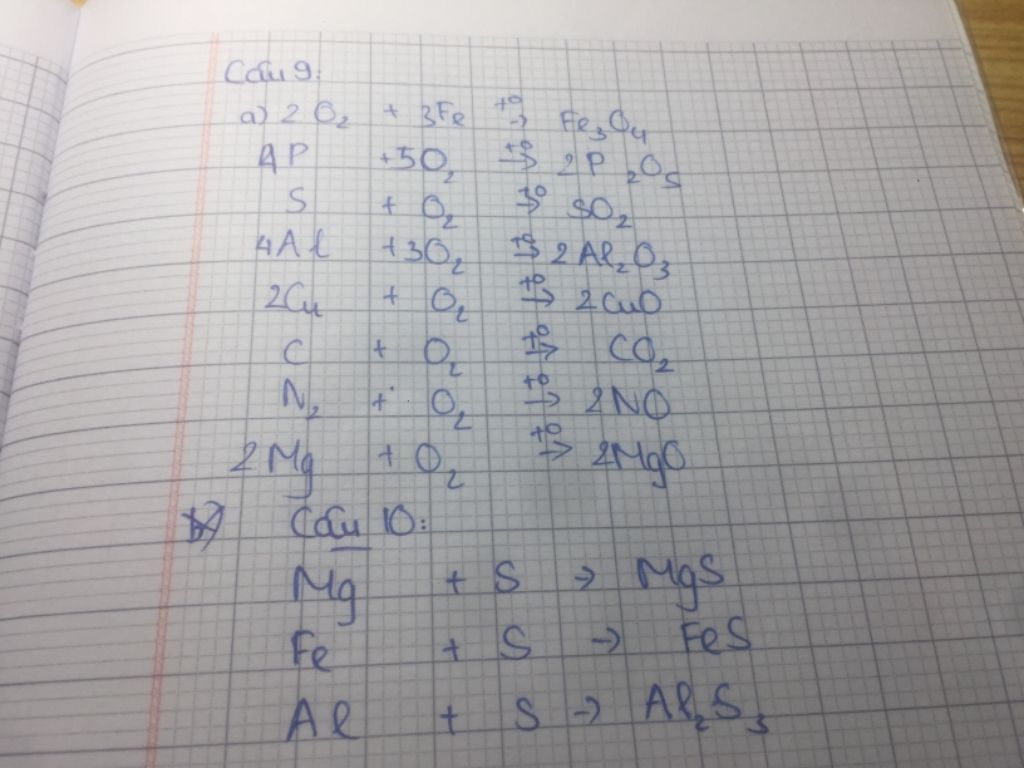 Câu 9:
a) 2 O₂ + 3Fe t⁰→ Fe₃O₄
4P + 5O₂ t⁰→ 2P₂O₅
S + O₂ t⁰→ SO₂
4Al + 3O₂ t⁰→ 2Al₂O₃
2Cu + O₂ t⁰→ 2CuO
C + O₂ t⁰→ CO₂
N₂ + O₂ t⁰→ 2NO
2Mg + O₂ t⁰→ 2MgO
b) Câu 10:
Mg + S → MgS
Fe + S → FeS
Al + S → Al₂S₃